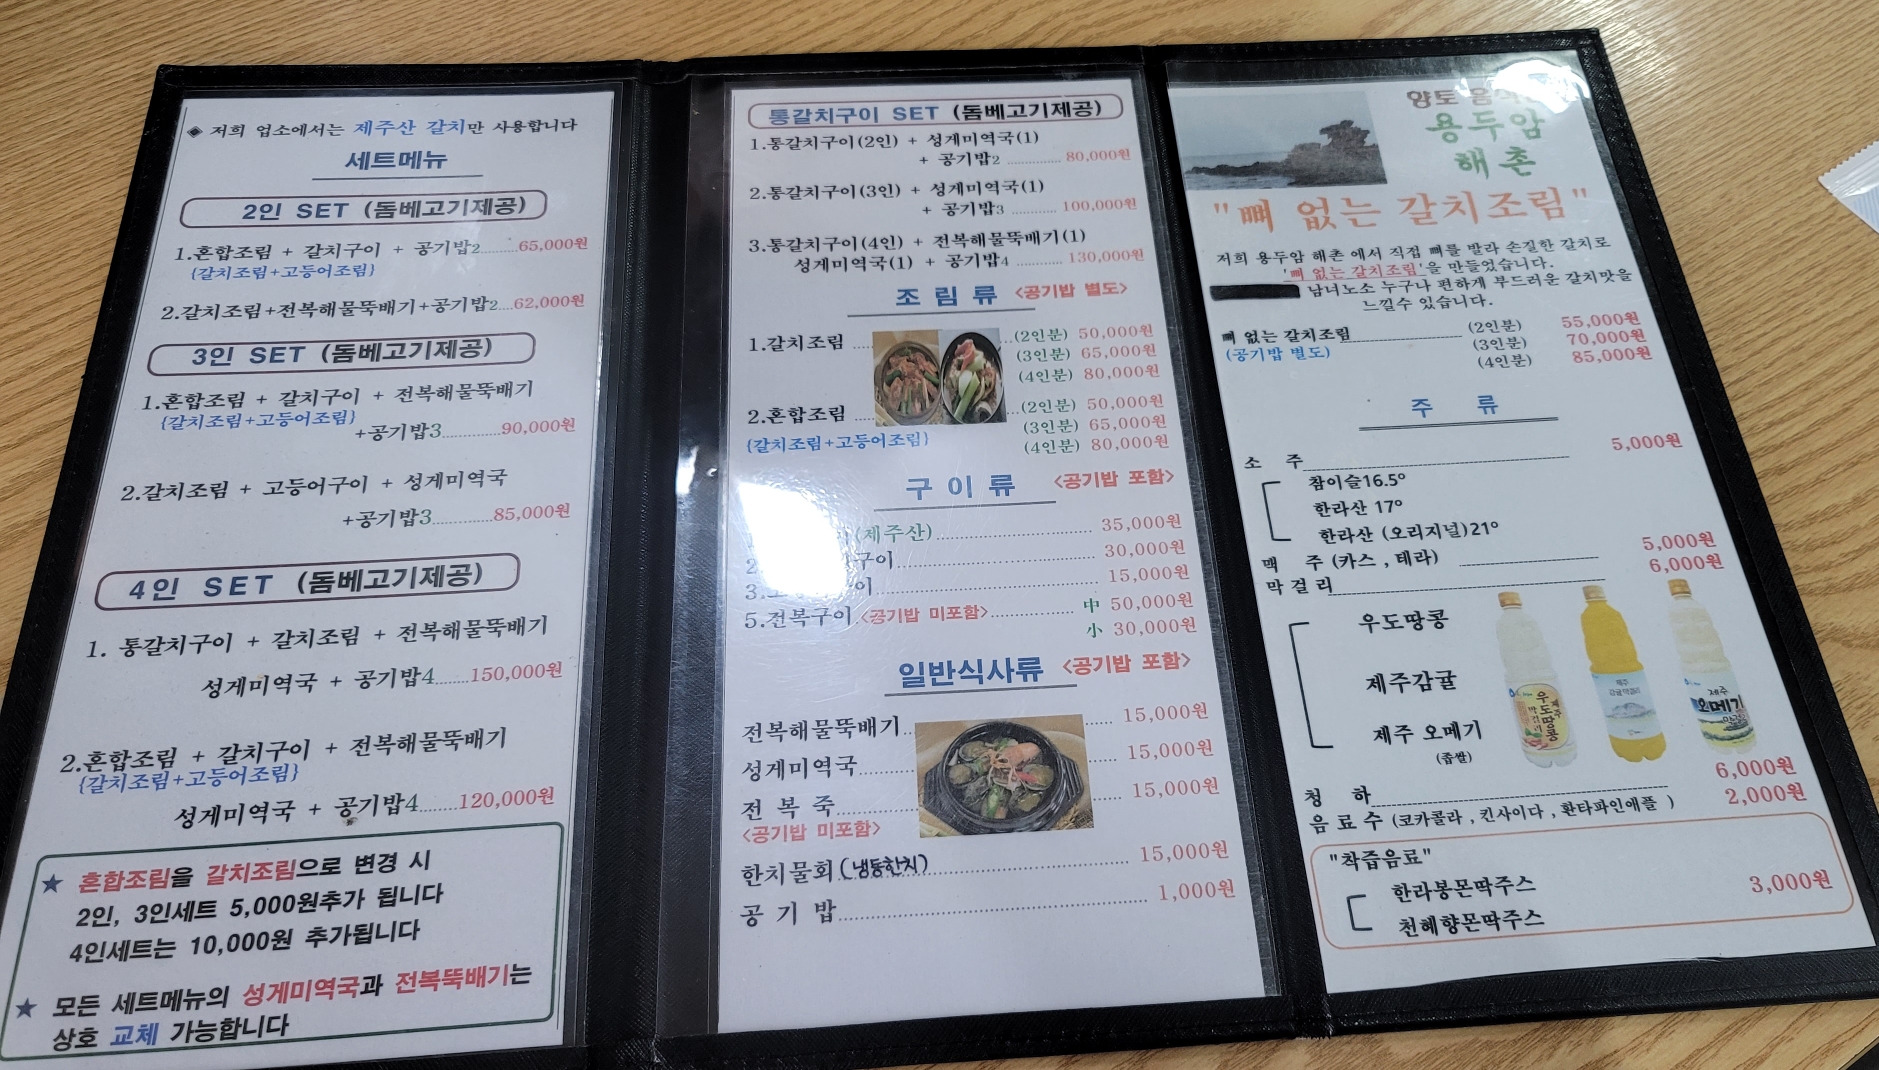 ◈ 저희 업소에서는 제주산 갈치만 사용합니다
세트메뉴
2인 SET (돔베고기제공)
1.혼합조림 + 갈치구이 + 공기밥2........65,000원
{갈치조림+고등어조림}
2.갈치조림+전복해물뚝배기+공기밥2....62,000원
3인 SET (돔베고기제공)
1.혼합조림 + 갈치구이 + 전복해물뚝배기
{갈치조림+고등어조림}
+공기밥3.............90,000원
2.갈치조림 + 고등어구이 + 성게미역국
+공기밥3.............85,000원
4인 SET (돔베고기제공)
1. 통갈치구이 + 갈치조림 + 전복해물뚝배기
성게미역국 + 공기밥4........150,000원
2.혼합조림 + 갈치구이 + 전복해물뚝배기
{갈치조림+고등어조림}
성게미역국 + 공기밥4........120,000원
★ 혼합조림을 갈치조림으로 변경 시
2인, 3인세트 5,000원추가 됩니다
4인세트는 10,000원 추가됩니다
★ 모든 세트메뉴의 성게미역국과 전복뚝배기는
상호 교체 가능합니다
통갈치구이 SET (돔베고기제공)
1.통갈치구이(2인) + 성게미역국(1)
+ 공기밥2 ............. 80,000원
2.통갈치구이(3인) + 성게미역국(1)
+ 공기밥3 ........... 100,000원
3.통갈치구이(4인) + 전복해물뚝배기(1)
성게미역국(1) + 공기밥4 ........... 130,000원
조 림 류 <공기밥 별도>
1.갈치조림 (2인분) 50,000원
(3인분) 65,000원
(4인분) 80,000원
2.혼합조림 (2인분) 50,000원
{갈치조림+고등어조림} (3인분) 65,000원
(4인분) 80,000원
구 이 류 <공기밥 포함>
(제주산) 35,000원
구이 30,000원
3. 이 15,000원
5.전복구이 <공기밥 미포함> 中 50,000원
小 30,000원
일반식사류 <공기밥 포함>
전복해물뚝배기 15,000원
성게미역국 15,000원
전 복 죽 15,000원
<공기밥 미포함>
한치물회 (냉동한치) 15,000원
공 기 밥 1,000원
향토
용두암
해촌
"뼈 없는 갈치조림"
저희 용두암 해촌 에서 직접 뼈를 발라 손질한 갈치로
'뼈 없는 갈치조림'을 만들었습니다.
남녀노소 누구나 편하게 부드러운 갈치맛을
느낄수 있습니다.
뼈 없는 갈치조림 (2인분) 55,000원
(공기밥 별도) (3인분) 70,000원
(4인분) 85,000원
주 류
소 주 5,000원
참이슬16.5º
한라산 17º
한라산 (오리지널)21º
맥 주 (카스 , 테라) 5,000원
막걸리 6,000원
우도땅콩
제주감귤
제주 오메기
(좁쌀)
우도땅콩
제주
제주
오메기
청 하 6,000원
음료수 (코카콜라 , 킨사이다 , 환타파인애플 ) 2,000원
"착즙음료"
한라봉몬딱주스
천혜향몬딱주스
3,000원